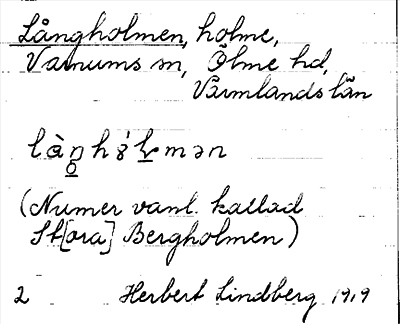 Långholmen, holme,
Varnums sn, Ölme hd,
Värmlands län
(Numer vanl. kallad
St[ora] Bergholmen)
2 Herbert Lindberg 1919